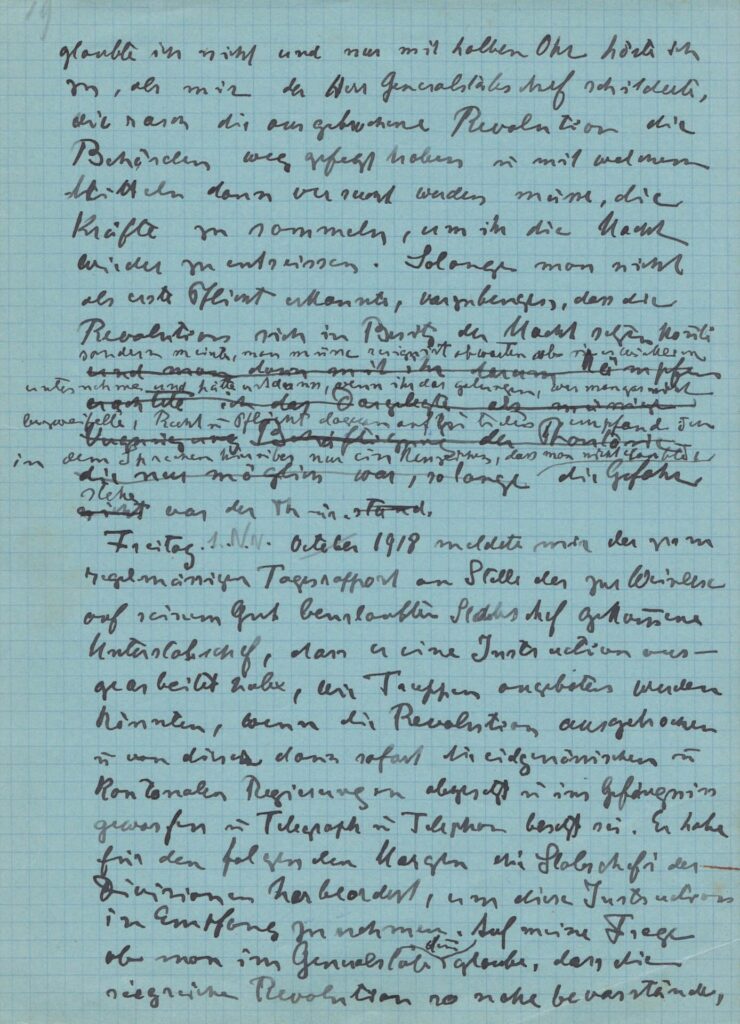 19
glaubte ich nicht und nur mit halbem Ohr hörte ich
zu, als mir der Herr Generalstabschef schilderte,
wie rasch die ausgebrochene Revolution die
Behörden weg gefegt haben u mit welchen
Mitteln dann versucht werden müsse, die
Kräfte zu sammeln, um ihr die Macht
wieder zu entreissen. Solange man nicht
als erste Pflicht erkannte, vorzubeugen, dass die
Revolution sich in Besitz der Macht setzen
sondern meinte, man müsse abwarten ob sie
und man dann mit ihr kämpfen
unternehme und hätte erst dann, wenn ihr das gelungen, was man gar nicht
erachtete ich das Dargelegte als müssige
bezweifelte, Recht u Pflicht empfand ich
der Phantasie
in dem Sprechen hierüber nur ein Kennzeichen, dass man nicht glaubte
die nur möglich war, so lange die Gefahr
nicht vor der Thür stand.
stehe
Freitag 1. Nov. October 1918 meldete mir der zum
regelmässigen Tagesrapport an Stelle des zur Weinlese
auf seinem Gut beurlaubten Stabschef gekommene
Unterstabschef, dass er eine Instruction aus-
gearbeitet habe, wie Truppen aufgeboten werden
könnten, wenn die Revolution ausgebrochen
u von dieser dann sofort die eidgenössischen u
kantonalen Regierungen abgesetzt u ins Gefängniss
geworfen u Telegraph u Telephon besetzt sei. Er habe
für den folgenden Morgen die Stabschefs der
Divisionen herbeordert, um diese Instructions
in Empfang zu nehmen. Auf meine Frage
ob man im Generalstabe denn glaube, dass die
siegreiche Revolution so nahe bevorstände,